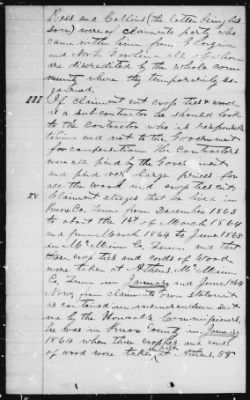 Ross and Collins (the latter being his
son) were of claimants party who
came with him from Georgia
and North Carolina all of whom
are discredited by the whole Com-
munity where they temporarily so-
journed.
III If claimant cut crop ties & wood
as a sub contractor he should look
to the Contractor who is responsible
to him and not to the Government
for compensation. The Contractors
were all paid by the Government
and paid large prices for
all the wood and crop ties cut.
IV Claimant alleges that he lived in
Knox Co. Tenn. from December 1863
to about the 1st of March 1864
and from March 1864 to June 1865
in McMinn Co. Tenn. and that
these crop ties and cords of Wood
were taken at Athens, McMinn
Co, Tenn in January and June 1864
Now, from claimants own statement
as contained in memorandum sent
me by the Honorable Commissioners,
he was in Knox County in January
1864 when these cross ties and cords
of wood were taken at Athens, 55